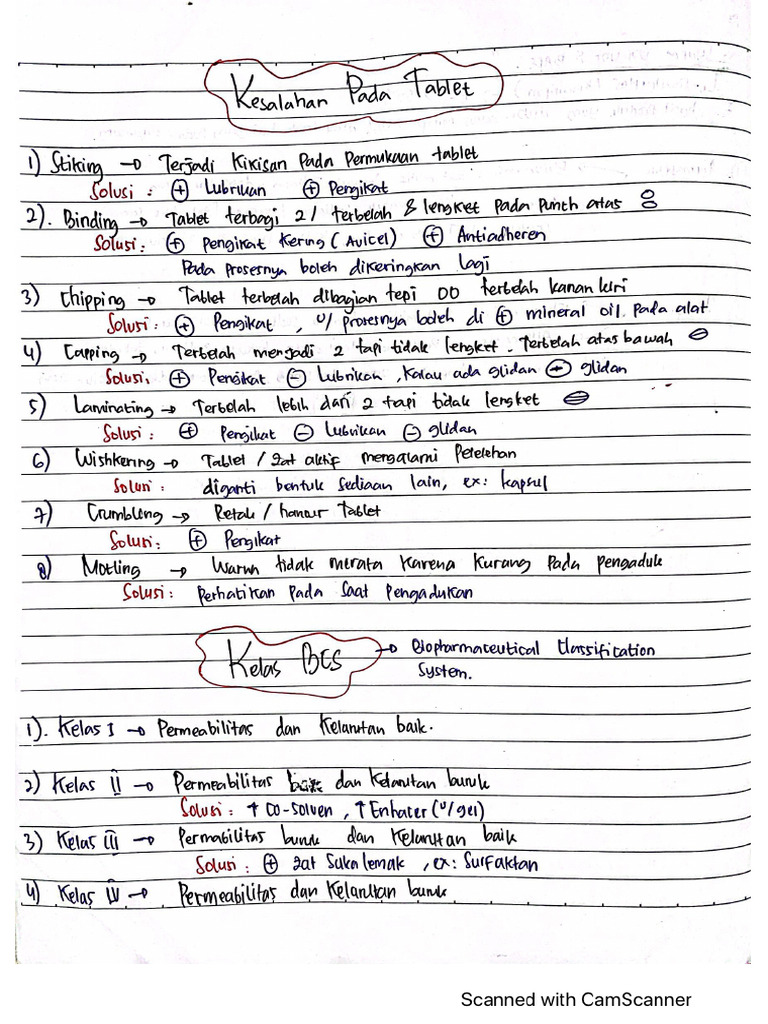 Kesalahan Pada Tablet
1) Stiking → Terjadi Kikisan Pada Permukaan tablet
Solusi : ⊕ Lubrikan ⊕ Pengikat
2). Binding → Tablet terbagi 2 / terbelah & lengket Pada Punch atas
Solusi : ⊕ Pengikat Kering (Avicel) ⊕ Antiadheren
Pada prosesnya boleh dikeringkan lagi
3) Chipping → Tablet terbelah dibagian tepi 00 terbelah kanan kiri
Solusi : ⊕ Pengikat , u/ prosesnya boleh di ⊕ mineral oil pada alat
4) Capping → Terbelah menjadi 2 tapi tidak lengket . Terbelah atas bawah
Solusi, ⊕ Pengikat ⊖ Lubrikan , Kalau ada glidan ⊖ glidan
5) Laminating → Terbelah lebih dari 2 tapi tidak lengket
Solusi : ⊕ Pengikat ⊖ Lubrikan ⊖ glidan
6) Wishkering → Tablet / zat aktif mengalami Pelelehan
Solusi : diganti bentuk sediaan lain, ex: kapsul
7) Crumbling → Retak / hancur Tablet
Solusi : ⊕ Pengikat
8) Motling → Warna tidak merata Karena Kurang Pada pengaduk
Solusi : Perhatikan Pada Saat Pengadukan
Kelas BCS → Biopharmaceutical Classification
System.
1). Kelas I → Permeabilitas dan Kelarutan baik.
2) Kelas II → Permeabilitas baik dan Kelarutan buruk
Solusi : ↑ Co-Solven , ↑ Enhacer (u/ gel)
3) Kelas III → Permabilitas buruk dan Kelarutan baik
Solusi : ⊕ zat Suka lemak , ex: Surfaktan
4) Kelas IV → Permeabilitas dan Kelarutan buruk
Scanned with CamScanner